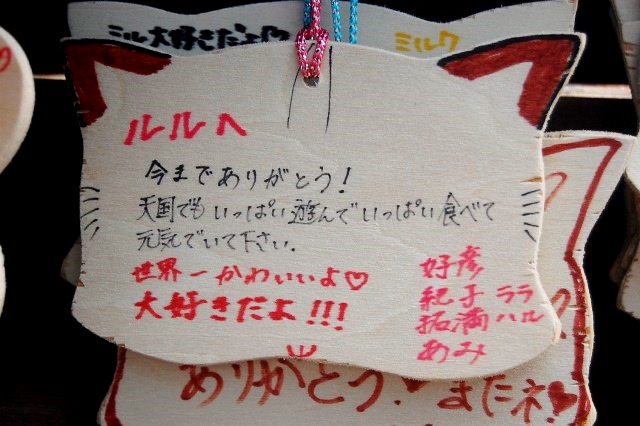 ミルク大好きだよ
ミルク
ルルへ
今までありがとう!
天国でもいっぱい遊んでいっぱい食べて
元気でいて下さい.
世界一かわいいよ♡
大好きだよ!!!
好彦
紀子 ララ
拓満 ハル
あみ
ありがとう! またネ!